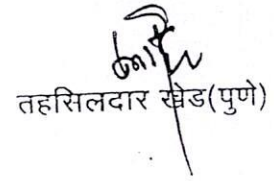 तहसिलदार खेड(पुणे)